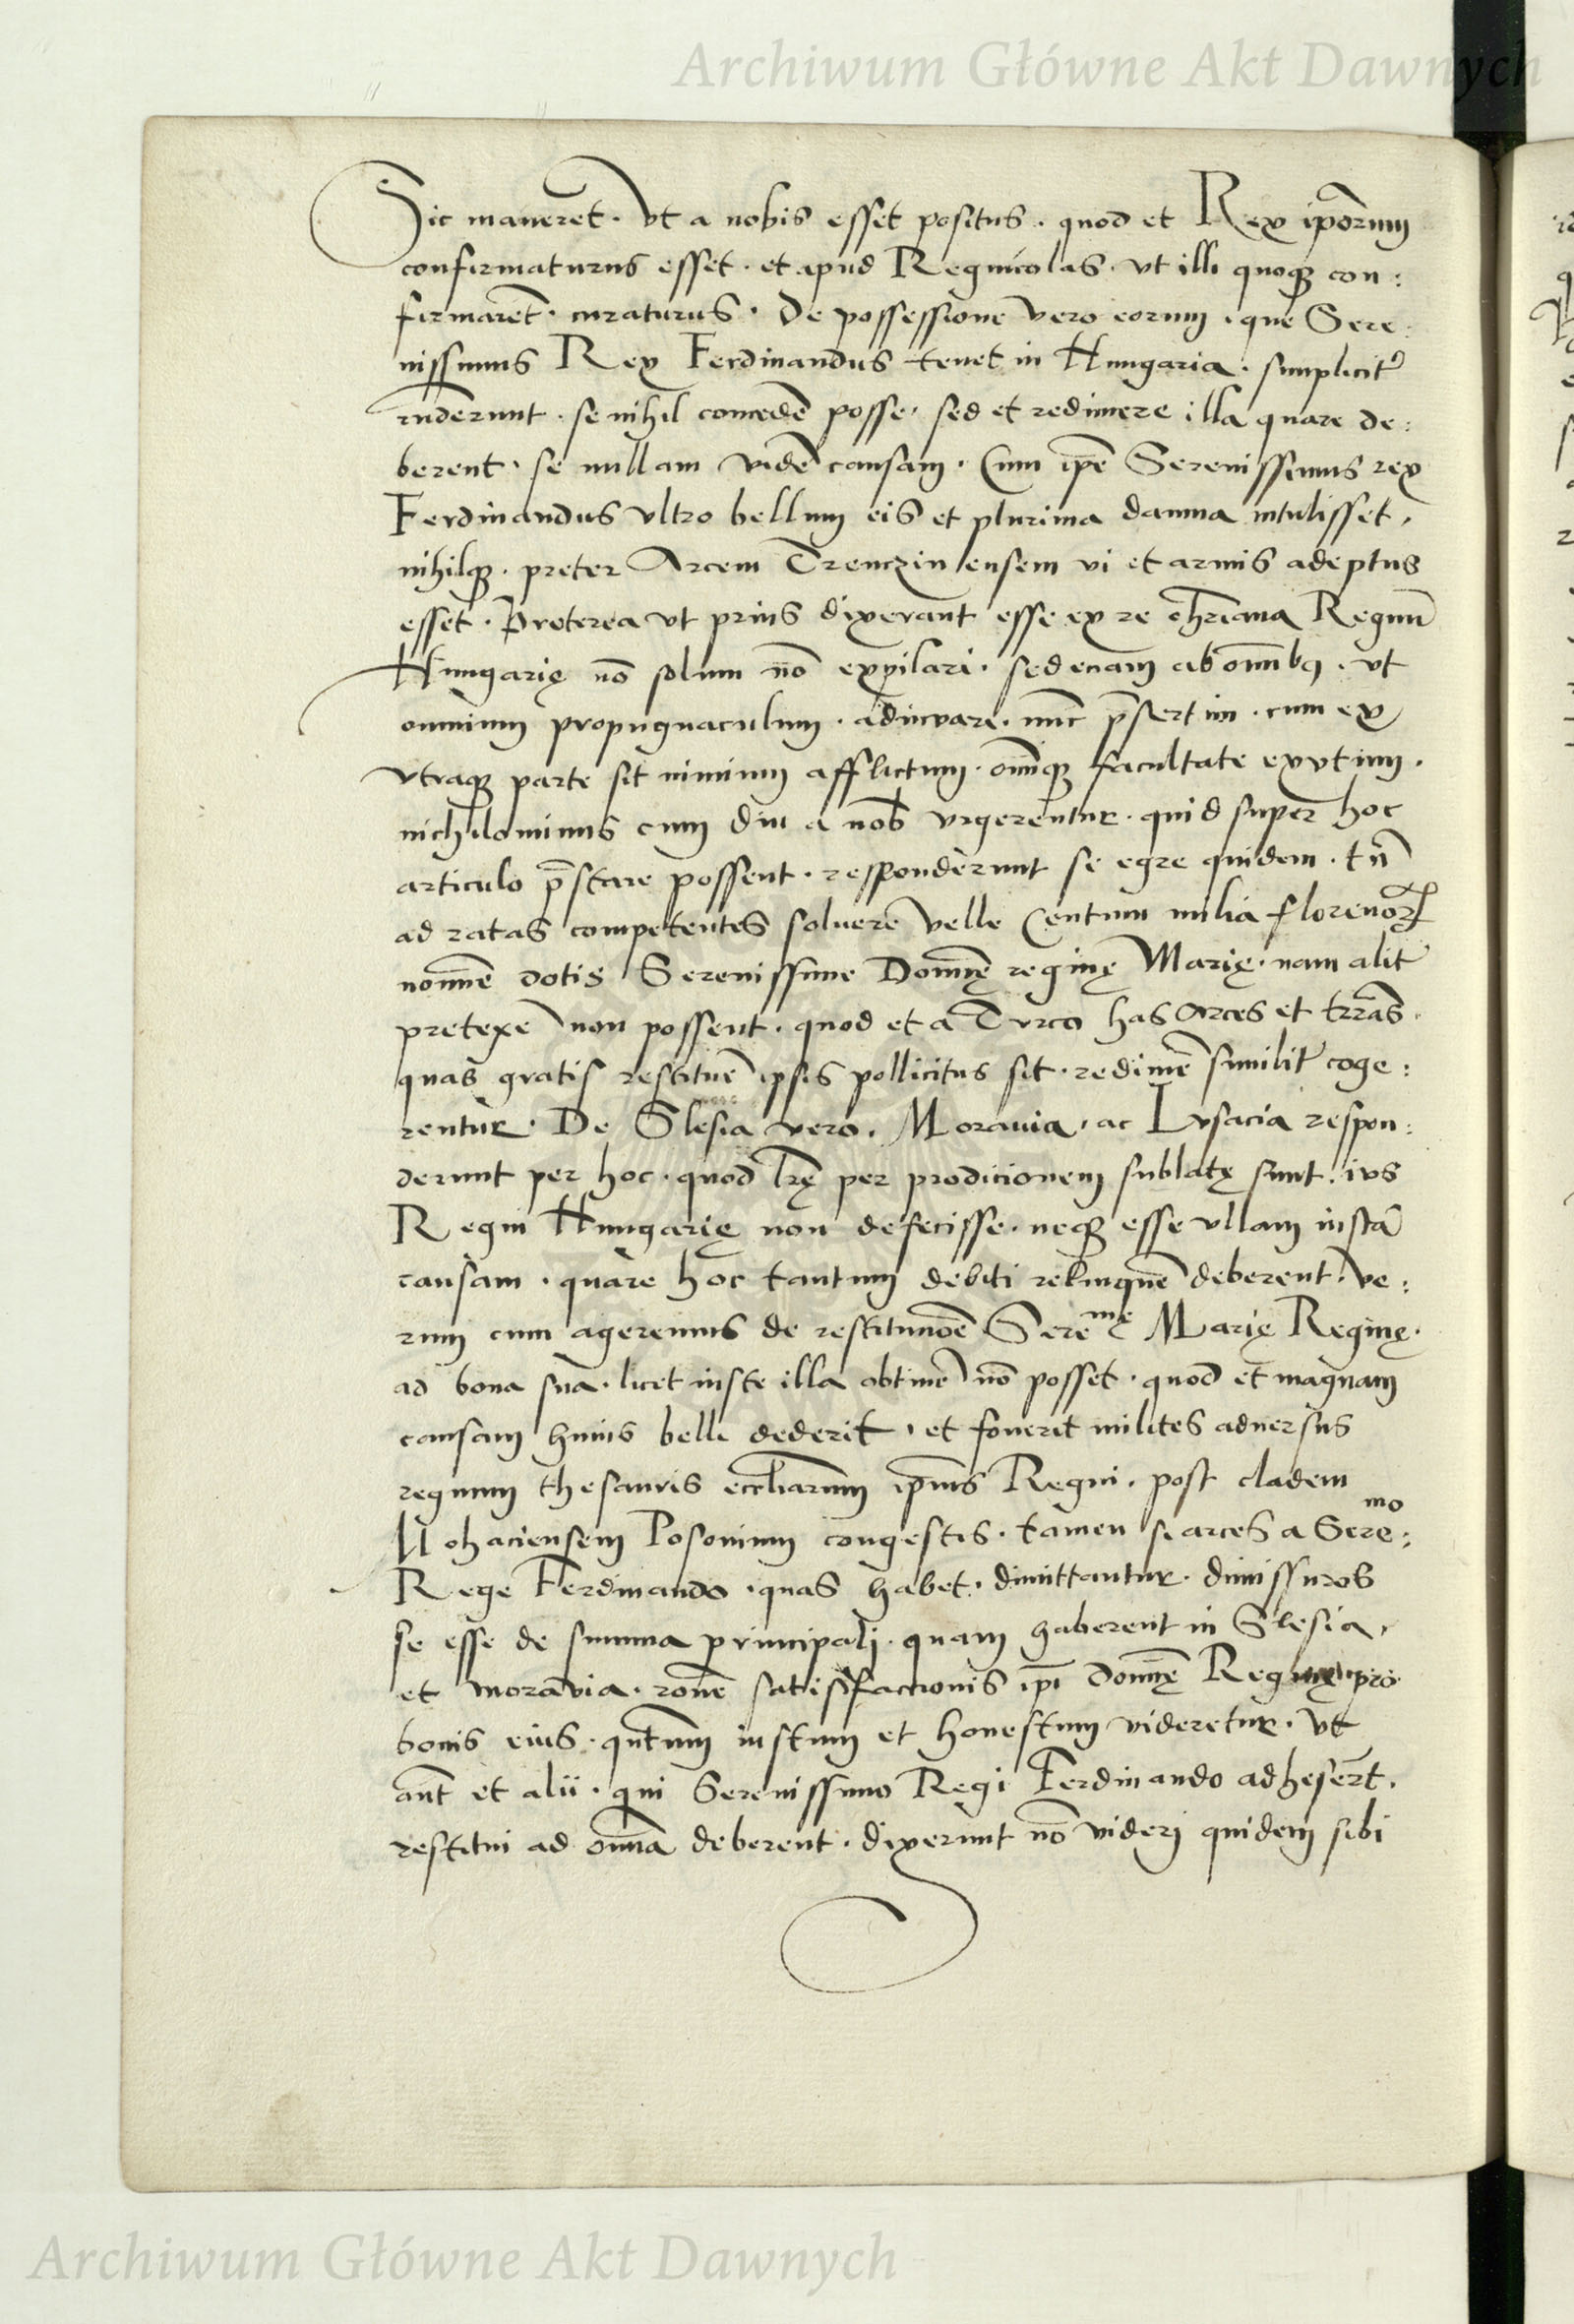 Archiwum Główne Akt Dawnych
Sic maneret. Vt a nobis esset positus. quod et Rex ip̄orum
confirmaturus esset. et apud Regnicolas. vt illi quoqꝫ con:
firmarēt. curaturus. De possessione vero eorum. que Sere:
nissimus Rex Ferdinandus tenet in Hungaria. simplicit̄
rn̄derunt. se nihil concedē posse, sed et redimere illa quare de:
berent. se nullam vidē causam. Cum ip̄e Serenissimus rex
Ferdinandus vltro bellum eis et plurima damna intulisset,
nihilqꝫ. preter Arcem Trenczin ensem vi et armis adeptus
esset. Preterea vt prius dixerant esse ex re chr̄iana Regnū
Hungarię nō solum nō expilari. sed etiam ab om̄ibꝫ. vt
omnium propugnaculum. adiuvare. nūc p̄sertim. cum ex
vtraqꝫ parte sit nimium afflictum. om̄iqꝫ facultate exutum.
nichilominus cum diu a nob̄ vrgerentur. quid super hoc
articulo p̄stare possent. responderunt se egre quidem. tn̄
ad ratas competentes soluere velle Centum milia florenoꝝ
nomīe dotis Serenissime Domīę reginę Marię. nam alit̄
pretexē non possent. quod et a Turco has Arces et tr̄ras.
quas gratis restituē ipsis pollicitus sit. redimē similit̄ coge:
rentur. De Slesia vero. Moravia, ac Lusacia respon:
derunt per hoc. quod lr̄ę per prodicionem sublatę sunt. ius
Regni Hungarię non defecisse. neqꝫ esse vllam iustā
causam. quare hoc tantum debiti relinquē deberent. Ve:
rum cum ageremus de restitutiōe Sereᵐᵉ Marię Reginę.
ad bona sua. licet iuste illa obtinē nō posset. quod et magnam
causam huius belli dederit, et fouerit milites aduersus
regnum thesauris eccl̄iarum ip̄ius Regni. post cladem
Mohaciensem Posonium congestis. tamen si arces a Sereᵐᵒ:
Rege Ferdinando. quas habet. dimittantur. dimissuros
se esse de summa principali. quam haberent in Slesia,
et moravia. rōne satisfactionis ip̄i Domīę Reginę pro
bonis eius. qn̄tum iustum et honestum videretur. Vt
aūt et alii. qui Serenissimo Regi Ferdinando adheser̄t.
restitui ad om̄ia deberent. dixerunt nō videri quidem sibi
Archiwum Główne Akt Dawnych